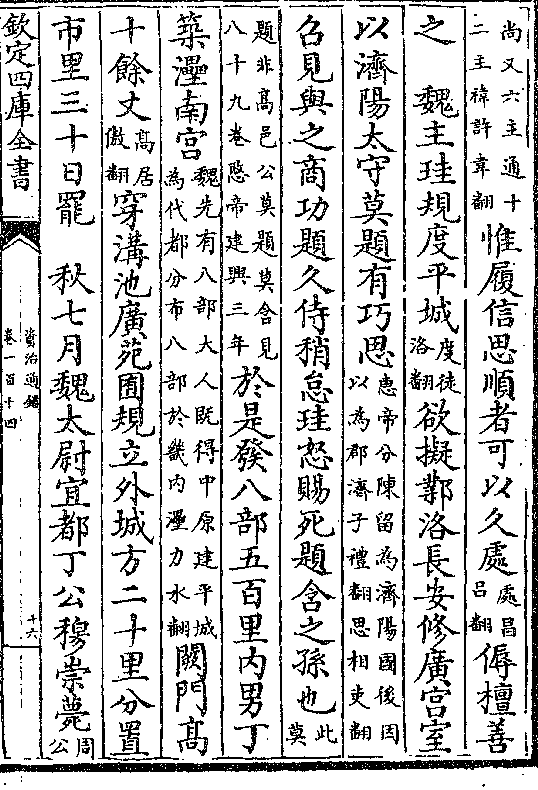 尚又六主通十二主禕許韋翻惟履信思順者可以久處處昌呂翻傉檀善
之　魏主珪規度平城度徒洛翻欲擬鄴洛長安修廣宫室
以濟陽太守莫題有巧思惠帝分陳留為濟陽國後因以為郡濟子禮翻思相吏翻
召見與之商功題久侍稍怠珪怒賜死題含之孫也此莫
題非髙邑公莫題莫含見八十九卷愍帝建興三年於是發八部五百里内男丁
築灅南宫魏先有八部大人既得中原建平城為代都分布八部於畿内灅力水翻闕門髙
十餘丈髙居傲翻穿溝池廣苑囿規立外城方二十里分置
市里三十日罷　秋七月魏太尉宜都丁公穆崇薨周公
欽定四庫全書
資治通鑑
卷一百十四
十六